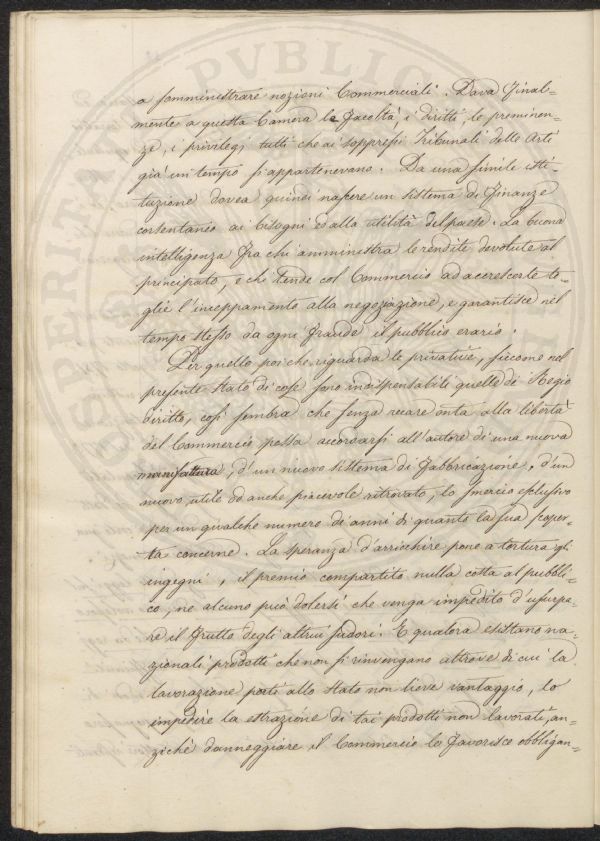 a somministrare nozioni Commerciali. Dava Final=
mente a questa Camera le Facoltà, i diritti, le preminen=
ze, i privilegj tutti che ai soppressi Tribunali delle Arti
già un tempo si appartenevano. Da una simile isti=
tuzione dovea quindi nascere un sistema di Finanze
consentaneo ai bisogni ed alla utilità del paese. La buona
intelligenza Fra chi amministra le rendite devolute al
principato, e chi tende col Commercio ad accrescerle to=
glie l'inceppamento alla negoziazione, e garantisce nel
tempo stesso da ogni Fraude il pubblico erario.
Per quello poi che riguarda le privative, siccome nel
presente stato di cose sono indispensabili quelle di Regio
diritto, così sembra che senza recare onta alla libertà
del Commercio possa accordarsi all'autore di una nuova
manifattura, d'un nuovo sistema di Fabbricazione, d'un
nuovo, utile od anche piacevole ritrovato, lo smercio esclusivo
per un qualche numero di anni di quanto la sua scoper=
ta concerne. La speranza d'arricchire pone a tortura gli
ingegni, il premio compartito nulla costa al pubbli=
co, ne alcuno può dolersi che venga impedito d'usurpa=
re il Frutto degli altrui sudori. E qualora esistano na=
zionali prodotti che non si rinvengano altrove di cui la
lavorazione porti allo stato non lieve vantaggio, lo
impedire la estrazione di tai prodotti non lavorati, an=
zichè danneggiare il Commercio lo Favorisce obbligan=
PVBLIC